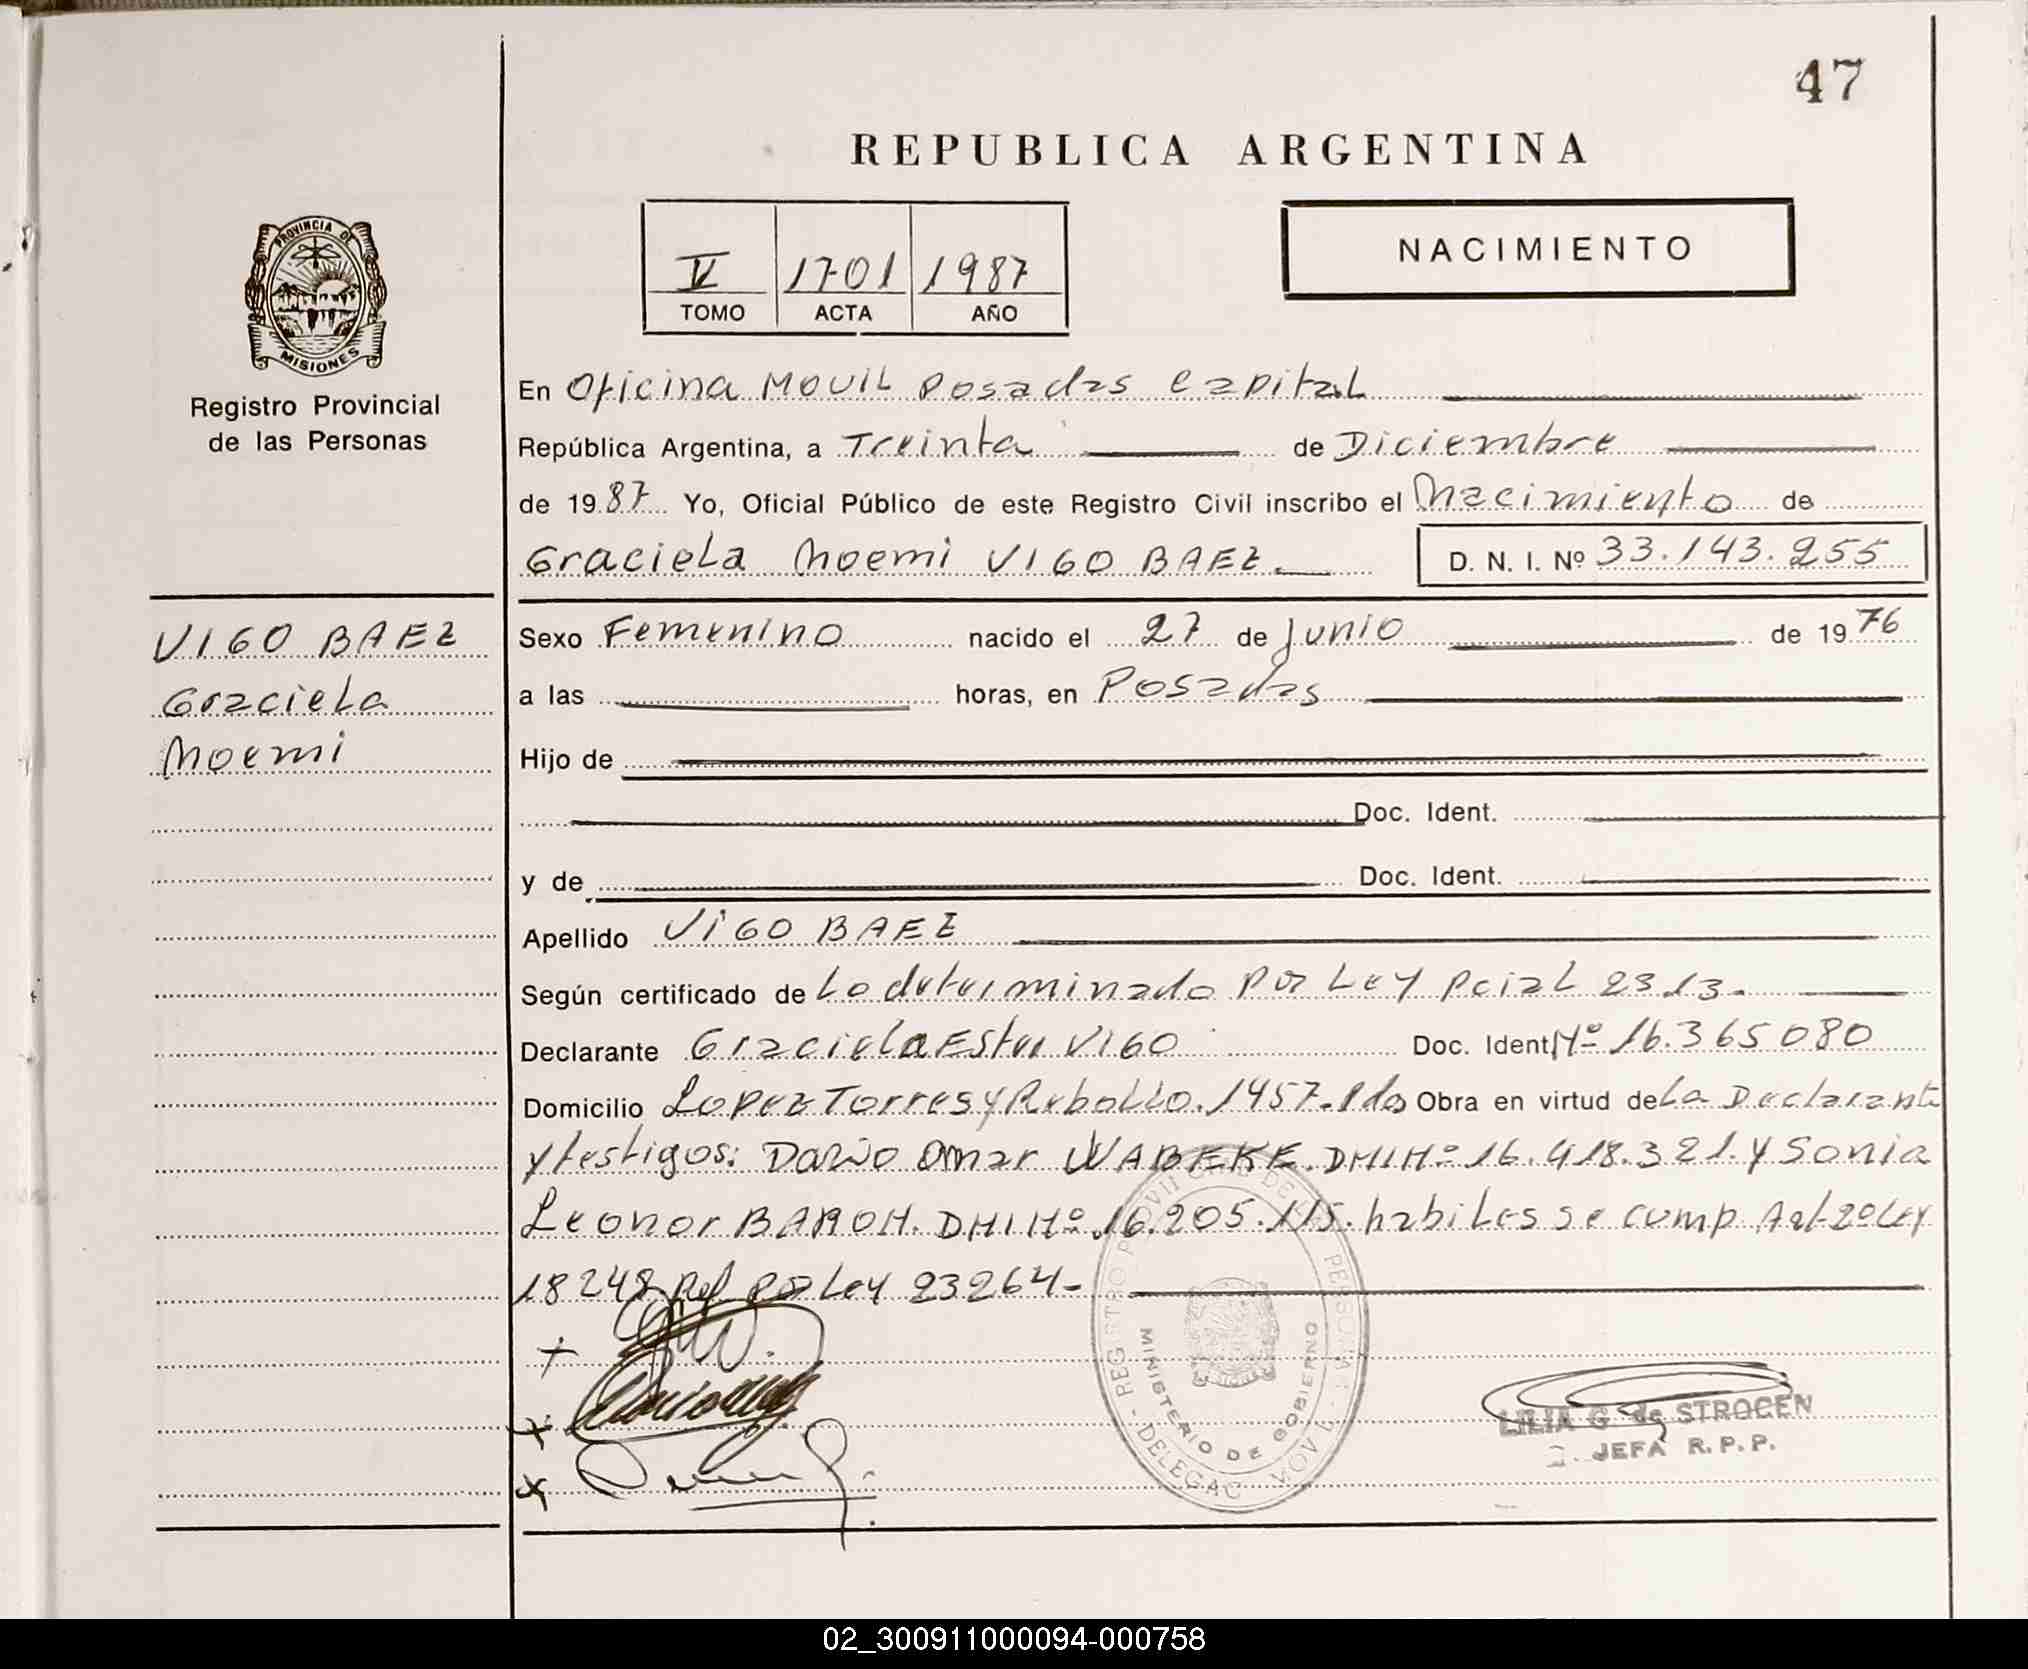 47
REPUBLICA ARGENTINA
V 1701 1987
TOMO ACTA AÑO
NACIMIENTO
PROVINCIA DE
MISIONES
Registro Provincial
de las Personas
En Oficina Movil Posadas Capital
República Argentina, a Treinta de Diciembre
de 1987 Yo, Oficial Público de este Registro Civil inscribo el Nacimiento de
Graciela Noemi VIGO BAEZ. D. N. I. Nº 33.143.255
VIGO BAEZ
Graciela
Noemi
Sexo Femenino nacido el 27 de Junio de 1976
a las horas, en Posadas
Hijo de
Doc. Ident.
y de Doc. Ident.
Apellido VIGO BAEZ
Según certificado de Lo determinado por Ley Pcial 2313.
Declarante Graciela Ester VIGO Doc. Ident Nº 16.365080
Domicilio Lopez Torres y Rebollo. 1457. Pdas Obra en virtud de La Declarante
y testigos: Dario Omar WABEKE. DNI Nº 16.418.321. y Sonia
Leonor BARON. DNI Nº 16.205.115. habiles se cump. Art 2º Ley
18248 Ref por Ley 23264-
REGISTRO PROVINCIAL DE LAS PERSONAS
MINISTERIO DE GOBIERNO
LILIA G. de STROCEN
JEFA R.P.P.
02_300911000094-000758